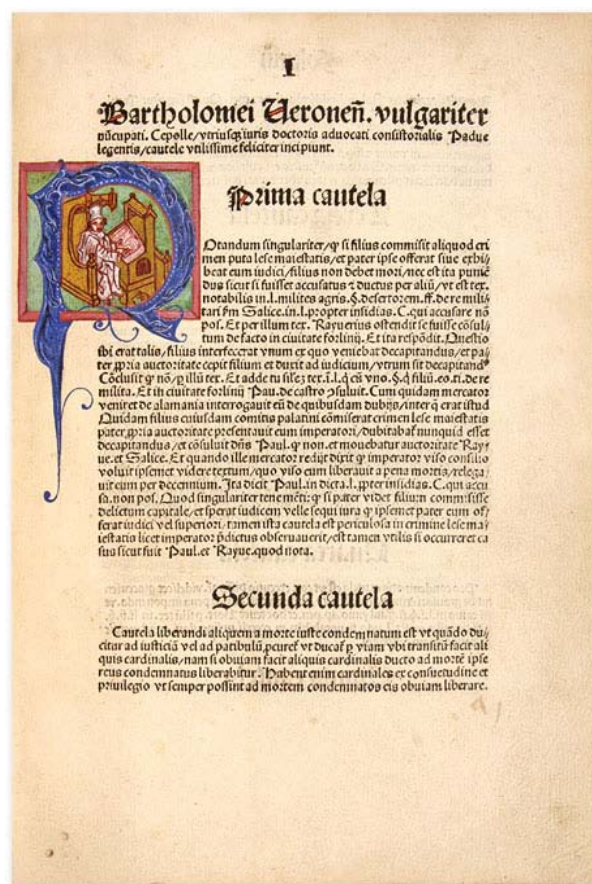 I
Bartholomei Veroneñ. vulgariter
nũcupati. Cepolle/vtriusqꝫ iuris doctoris aduocati consistorialis Padue
legentis/cautele vtilissime feliciter incipiunt.
Prima cautela
Notandum singulariter/ꝙ si filius commisit aliquod cri
men puta lese maiestatis/et pater ipse offerat siue exhi/
beat eum iudici/filius non debet mori/nec est ita puniē
dus sicut si fuisset accusatus ⁊ ductus per aliū/vt est tex.
notabilis in.l.milites agris.§.desertorem.ff.de re mili/
tari ẜm Salice.in.l.propter insidias.C.qui accusare nō
pos. Et per illum tex. Rayuerius ostendit se fuisse cōsul/
tum de facto in ciuitate forlinij. Et ita respōdit. Questio
ibi erat talis/filius interfecerat vnum ex quo veniebat decapitandus/et pa/
ter ꝓpria auctoritate cepit filium et duxit ad iudicium/vtrum sit decapitandꝰ
Cōclusit ꝙ nō/ꝑ illū tex. Et adde tu
milita. Et in ciuitate forlinij Pau. de castro ꝯsuluit. Cum quidam mercator
veniret de alamania interrogauit eū de quibusdam dubijs/inter ꝗ̄ erat istud
Quidam filius cuiusdam comitis palatini cōmiserat crimen lese maiestatis
pater ꝓpria auctoritate presentauit eum imperatori/dubitabat̃ nunquid esset
decapitandus/et cōsuluit dñs Paul. ꝙ non. et mouebatur auctoritate Ray/
ue. et Salice. Et quando ille mercator redijt dixit ꝙ imperator viso consilio
voluit ipsemet videre textum/quo viso eum liberauit a pena mortis/relega/
uit eum per decennium. Ita dicit Paul. in dicta.l.ꝓpter insidias.C.qui accu/
sa.non pos. Quod singulariter tene mēti: ꝙ si pater videt filium commisisse
delictum capitale/et sperat iudicem velle sequi iura ꝙ ipsemet pater eum of/
ferat iudici vel superiori/tamen ista cautela est periculosa in crimine lese ma/
iestatis licet imperator p̄dictus obseruauerit/est tamen vtilis si occurreret ca
sus sicut fuit Paul.et Rayue.quod nota.
Secunda cautela
Cautela liberandi aliquem a morte iuste condemnatum est vt quādo du/
citur ad iusticiā vel ad patibulū ꝓcuret̃ vt ducat̃ ꝑ viam vbi transitū facit ali
quis cardinalis/nam si obuiam facit aliquis cardinalis ducto ad mortē ipse
reus condemnatus liberabitur. Habent enim cardinales ex consuetudine et
priuilegio vt semper possint ad mortem condemnatos eis obuiam liberare.